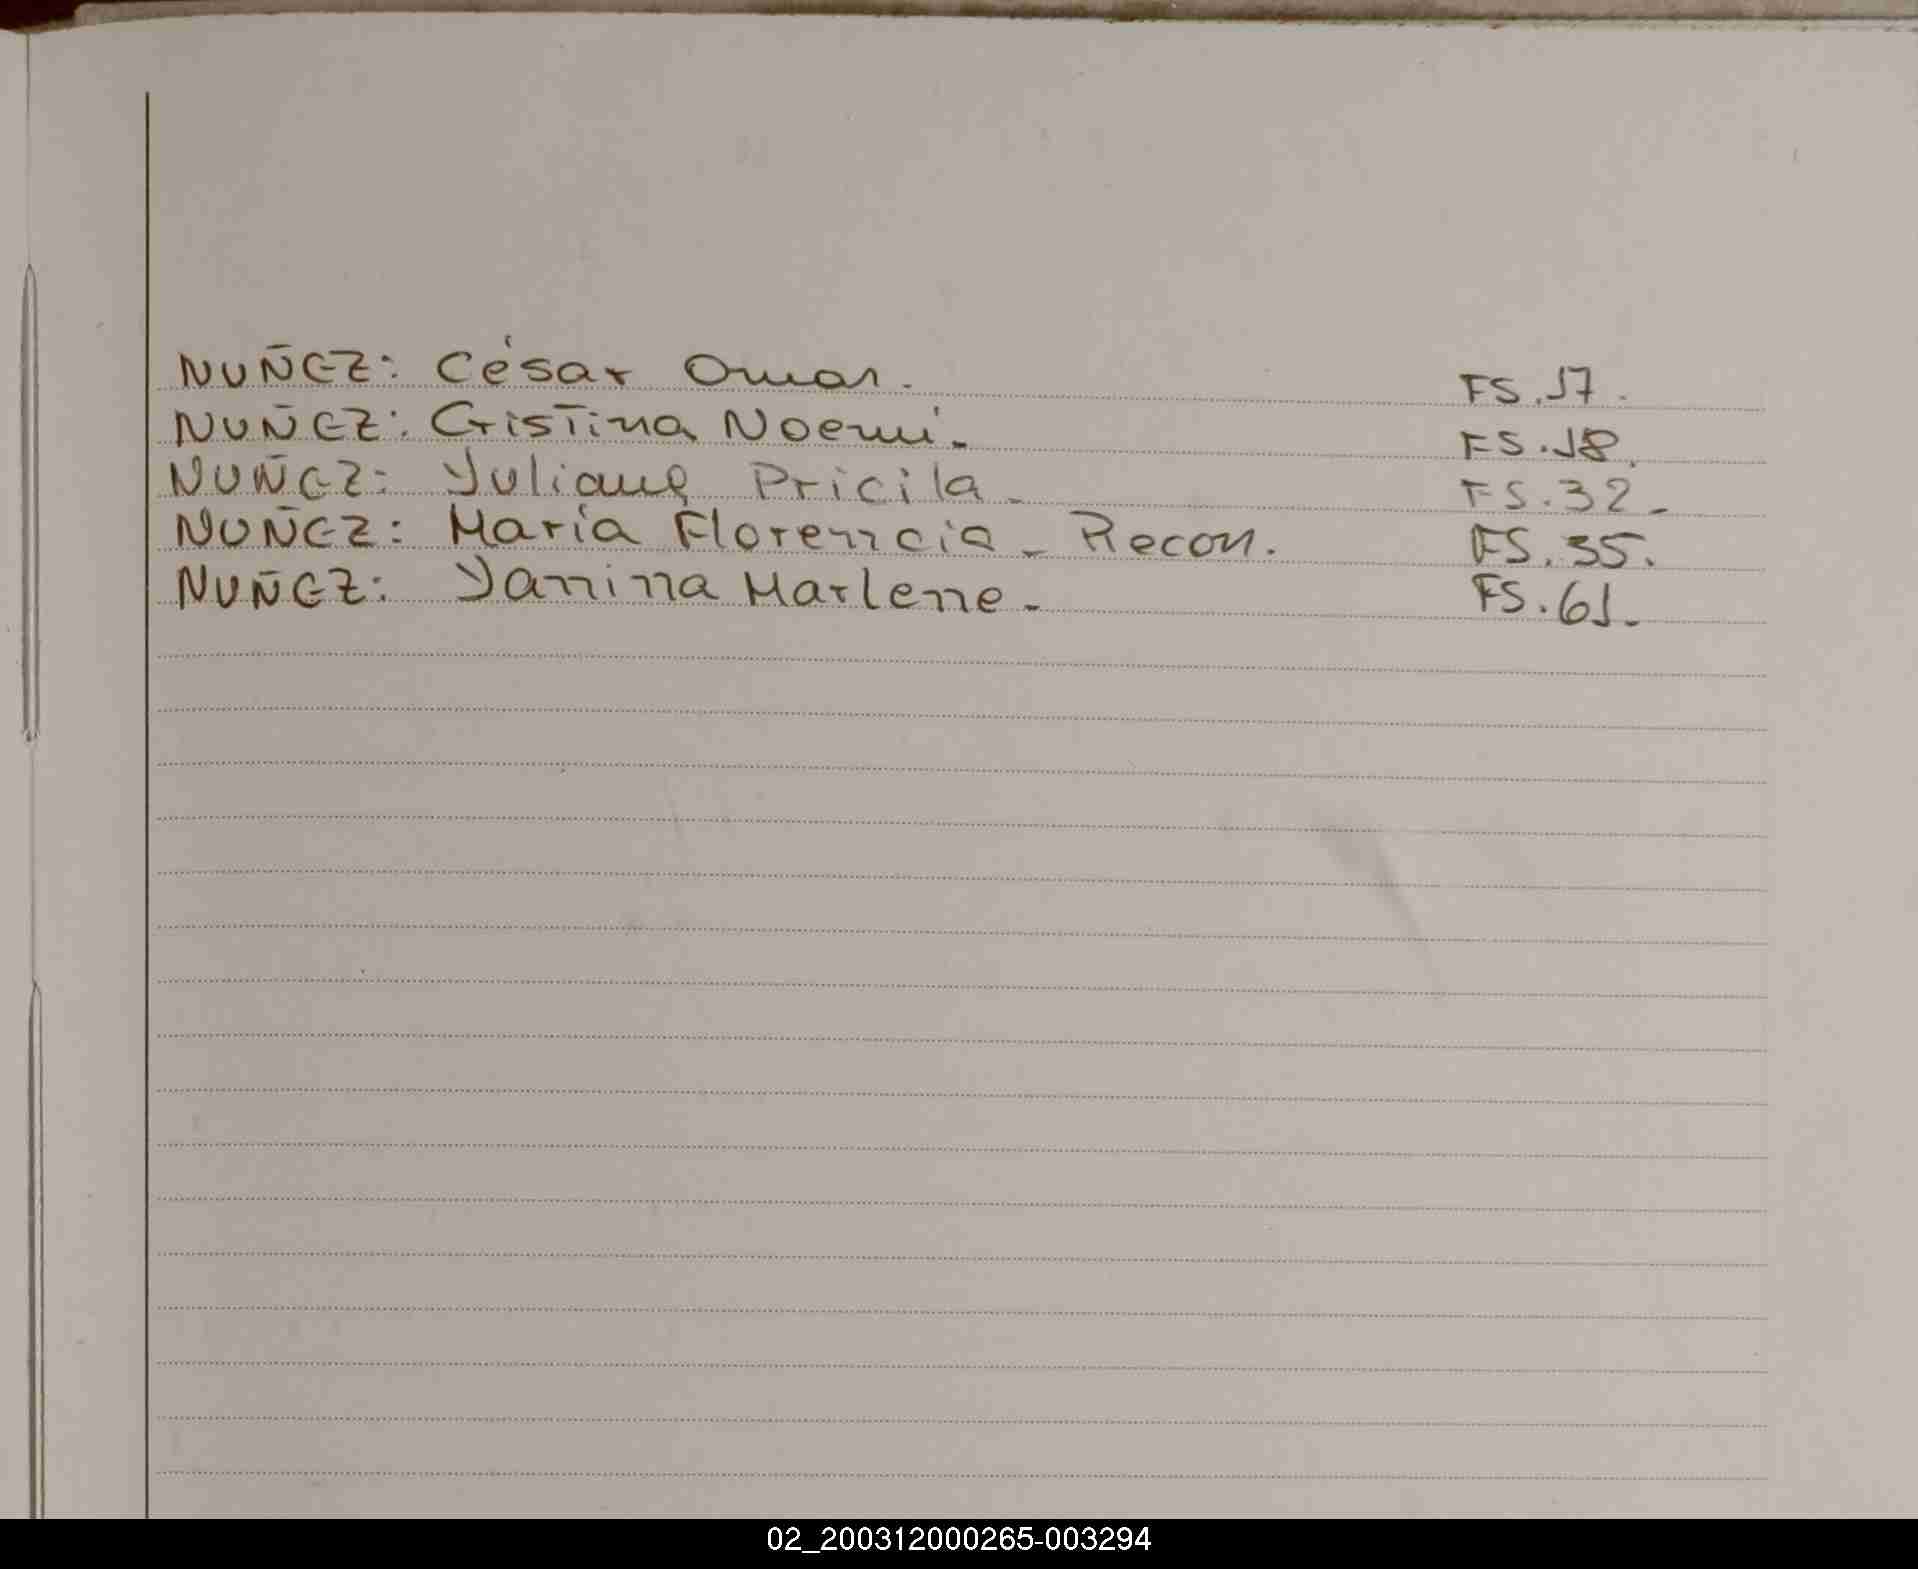 NUÑEZ: César Omar. FS.17.
NUÑEZ: Cristina Noemi. FS.18.
NUÑEZ: Yuliana Pricila. FS.32.
NUÑEZ: María Florencia - Recon. FS.35.
NUÑEZ: Yanina Marlene. FS.61.
02_200312000265-003294